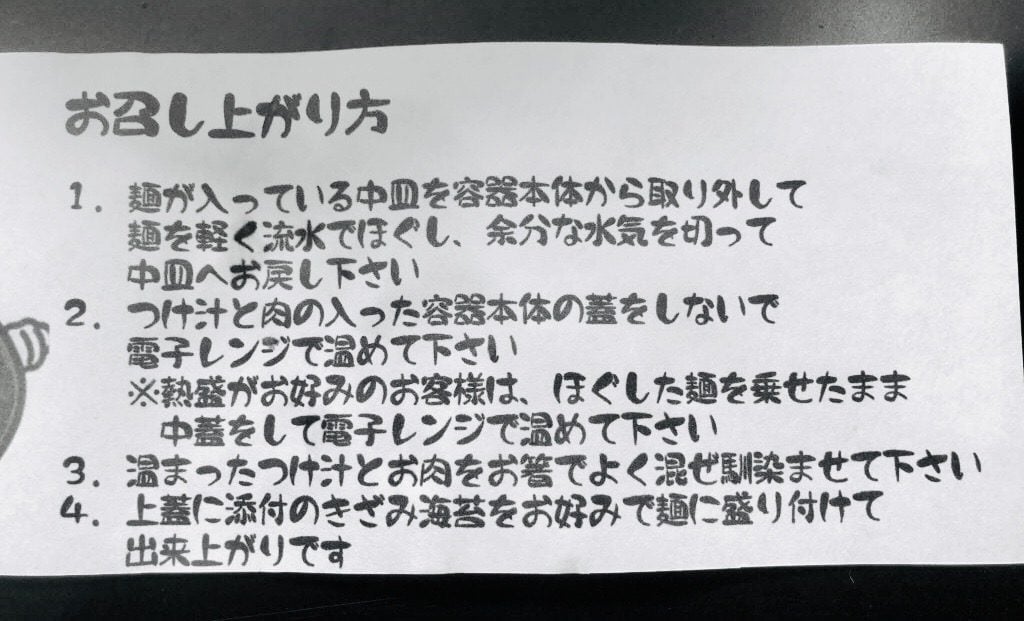 お召し上がり方
1. 麺が入っている中皿を容器本体から取り外して
麺を軽く流水でほぐし、余分な水気を切って
中皿へお戻し下さい
2. つけ汁と肉の入った容器本体の蓋をしないで
電子レンジで温めて下さい
※熱盛がお好みのお客様は、ほぐした麺を乗せたまま
中蓋をして電子レンジで温めて下さい
3. 温まったつけ汁とお肉をお箸でよく混ぜ馴染ませて下さい
4. 上蓋に添付のきざみ海苔をお好みで麺に盛り付けて
出来上がりです